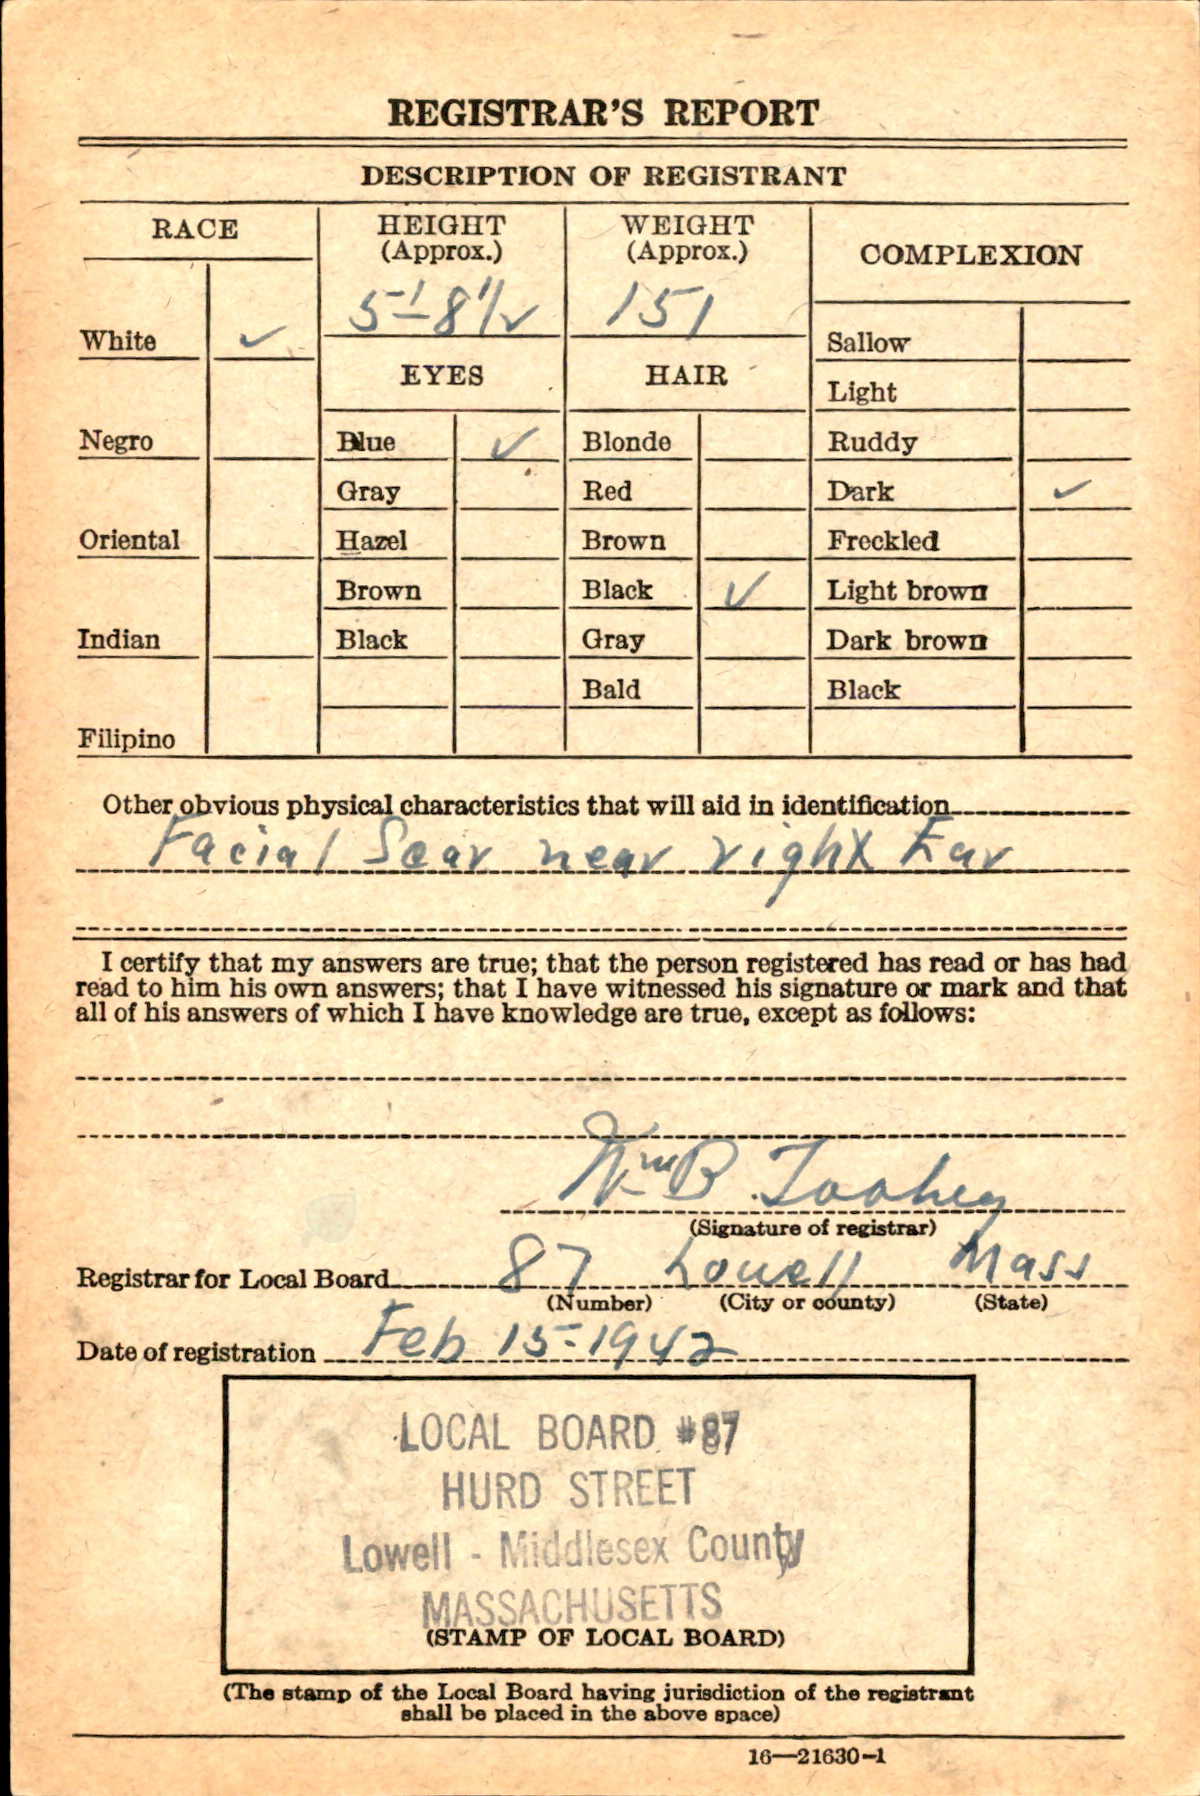 REGISTRAR'S REPORT
DESCRIPTION OF REGISTRANT
RACE
HEIGHT
(Approx.)
WEIGHT
(Approx.)
COMPLEXION
5'-8 1/2
151
White ✓
Sallow
EYES
HAIR
Light
Negro
Blue ✓
Blonde
Ruddy
Gray
Red
Dark ✓
Oriental
Hazel
Brown
Freckled
Brown
Black ✓
Light brown
Indian
Black
Gray
Dark brown
Bald
Black
Filipino
Other obvious physical characteristics that will aid in identification
Facial Scar near right Ear
I certify that my answers are true; that the person registered has read or has had
read to him his own answers; that I have witnessed his signature or mark and that
all of his answers of which I have knowledge are true, except as follows:
Wm B Toohey
(Signature of registrar)
Registrar for Local Board 87 Lowell Mass
(Number) (City or county) (State)
Date of registration Feb 15-1942
LOCAL BOARD #87
HURD STREET
Lowell - Middlesex County
MASSACHUSETTS
(STAMP OF LOCAL BOARD)
(The stamp of the Local Board having jurisdiction of the registrant
shall be placed in the above space)
16—21630-1